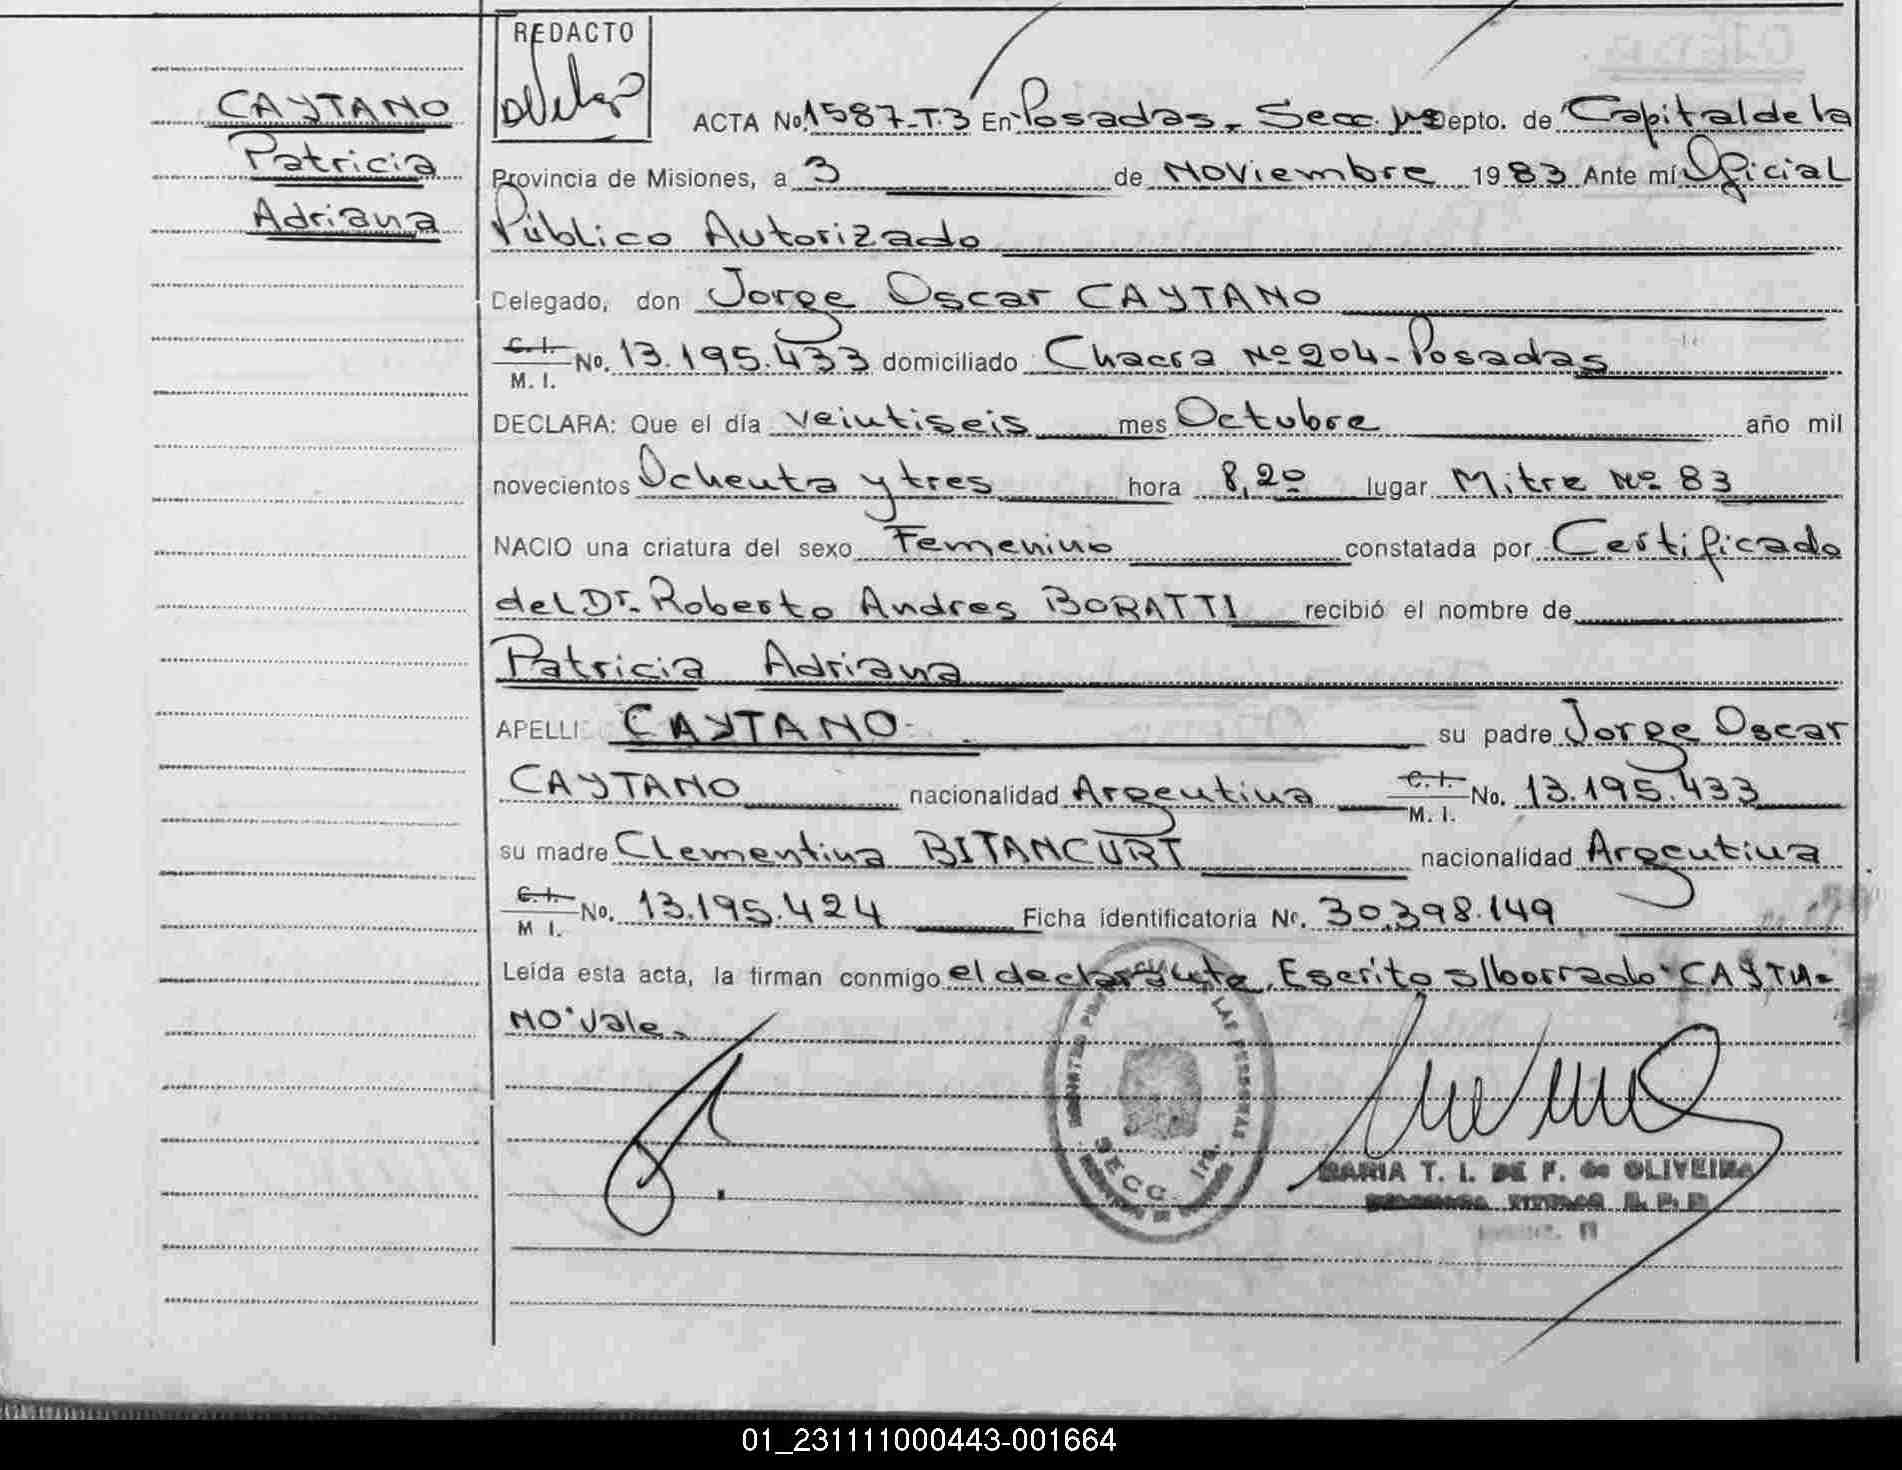 REDACTO
CAYTANO
Patricia
Adriana
ACTA No. 1587-T.3 En Posadas, Secc. 1ra Depto. de Capital de la
Provincia de Misiones, a 3 de Noviembre 1983 Ante mí Oficial
Público Autorizado
Delegado, don Jorge Oscar CAYTANO
C. I.
M. I. No. 13.195.433 domiciliado Chacra Nº 204-Posadas
DECLARA: Que el día veintiseis mes Octubre año mil
novecientos Ochenta y tres hora 8,20 lugar Mitre Nº 83
NACIO una criatura del sexo Femenino constatada por Certificado
del Dr. Roberto Andres BORATTI recibió el nombre de
Patricia Adriana
APELLI CAYTANO su padre Jorge Oscar
CAYTANO nacionalidad Argentina C. I. M. I. No. 13.195.433
su madre Clementina BITANCURT nacionalidad Argentina
C. I.
M I. No. 13.195.424 Ficha identificatoria Nº. 30.398.149
Leída esta acta, la firman conmigo el declarante. Escrito s/borrado "CAYTA-
NO" Vale.
SECC. 1ra.
MARIA T. I. DE F. de OLIVEIRA
01_231111000443-001664